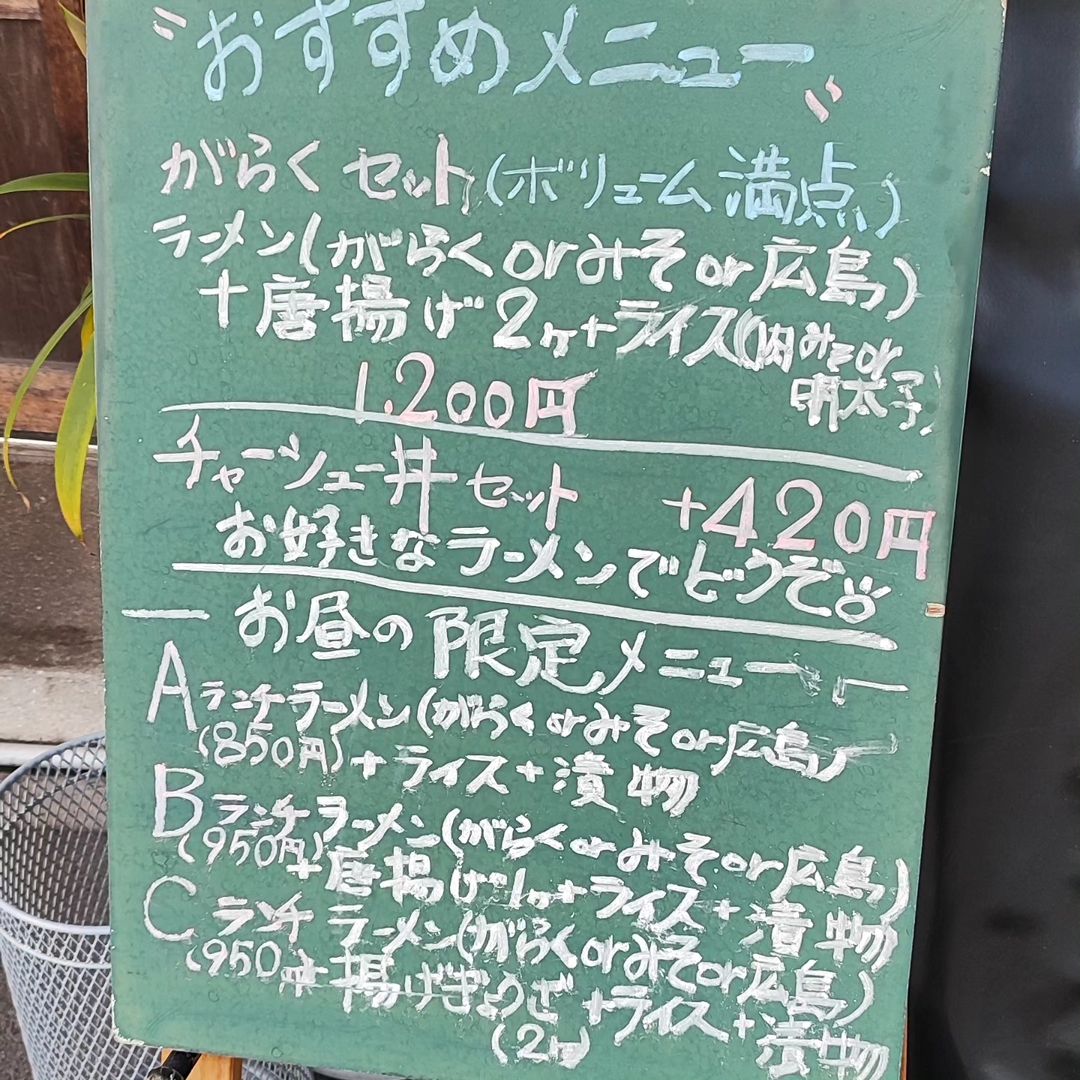 〝おすすめメニュー〟
がらくセット(ボリューム満点)
ラーメン(がらくorみそor広島)
+唐揚げ2ヶ+ライス(肉みそor
明太子)
1,200円
チャーシュー丼セット +420円
お好きなラーメンでどうぞ
お昼の限定メニュー
Aランチラーメン(がらくorみそor広島)
(850円)+ライス+漬物
Bランチラーメン(がらくorみそor広島)
(950円)+唐揚げ1ヶ+ライス+漬物
Cランチラーメン(がらくorみそor広島)
(950 +揚げぎょうざ+ライス+漬物
(2ヶ)